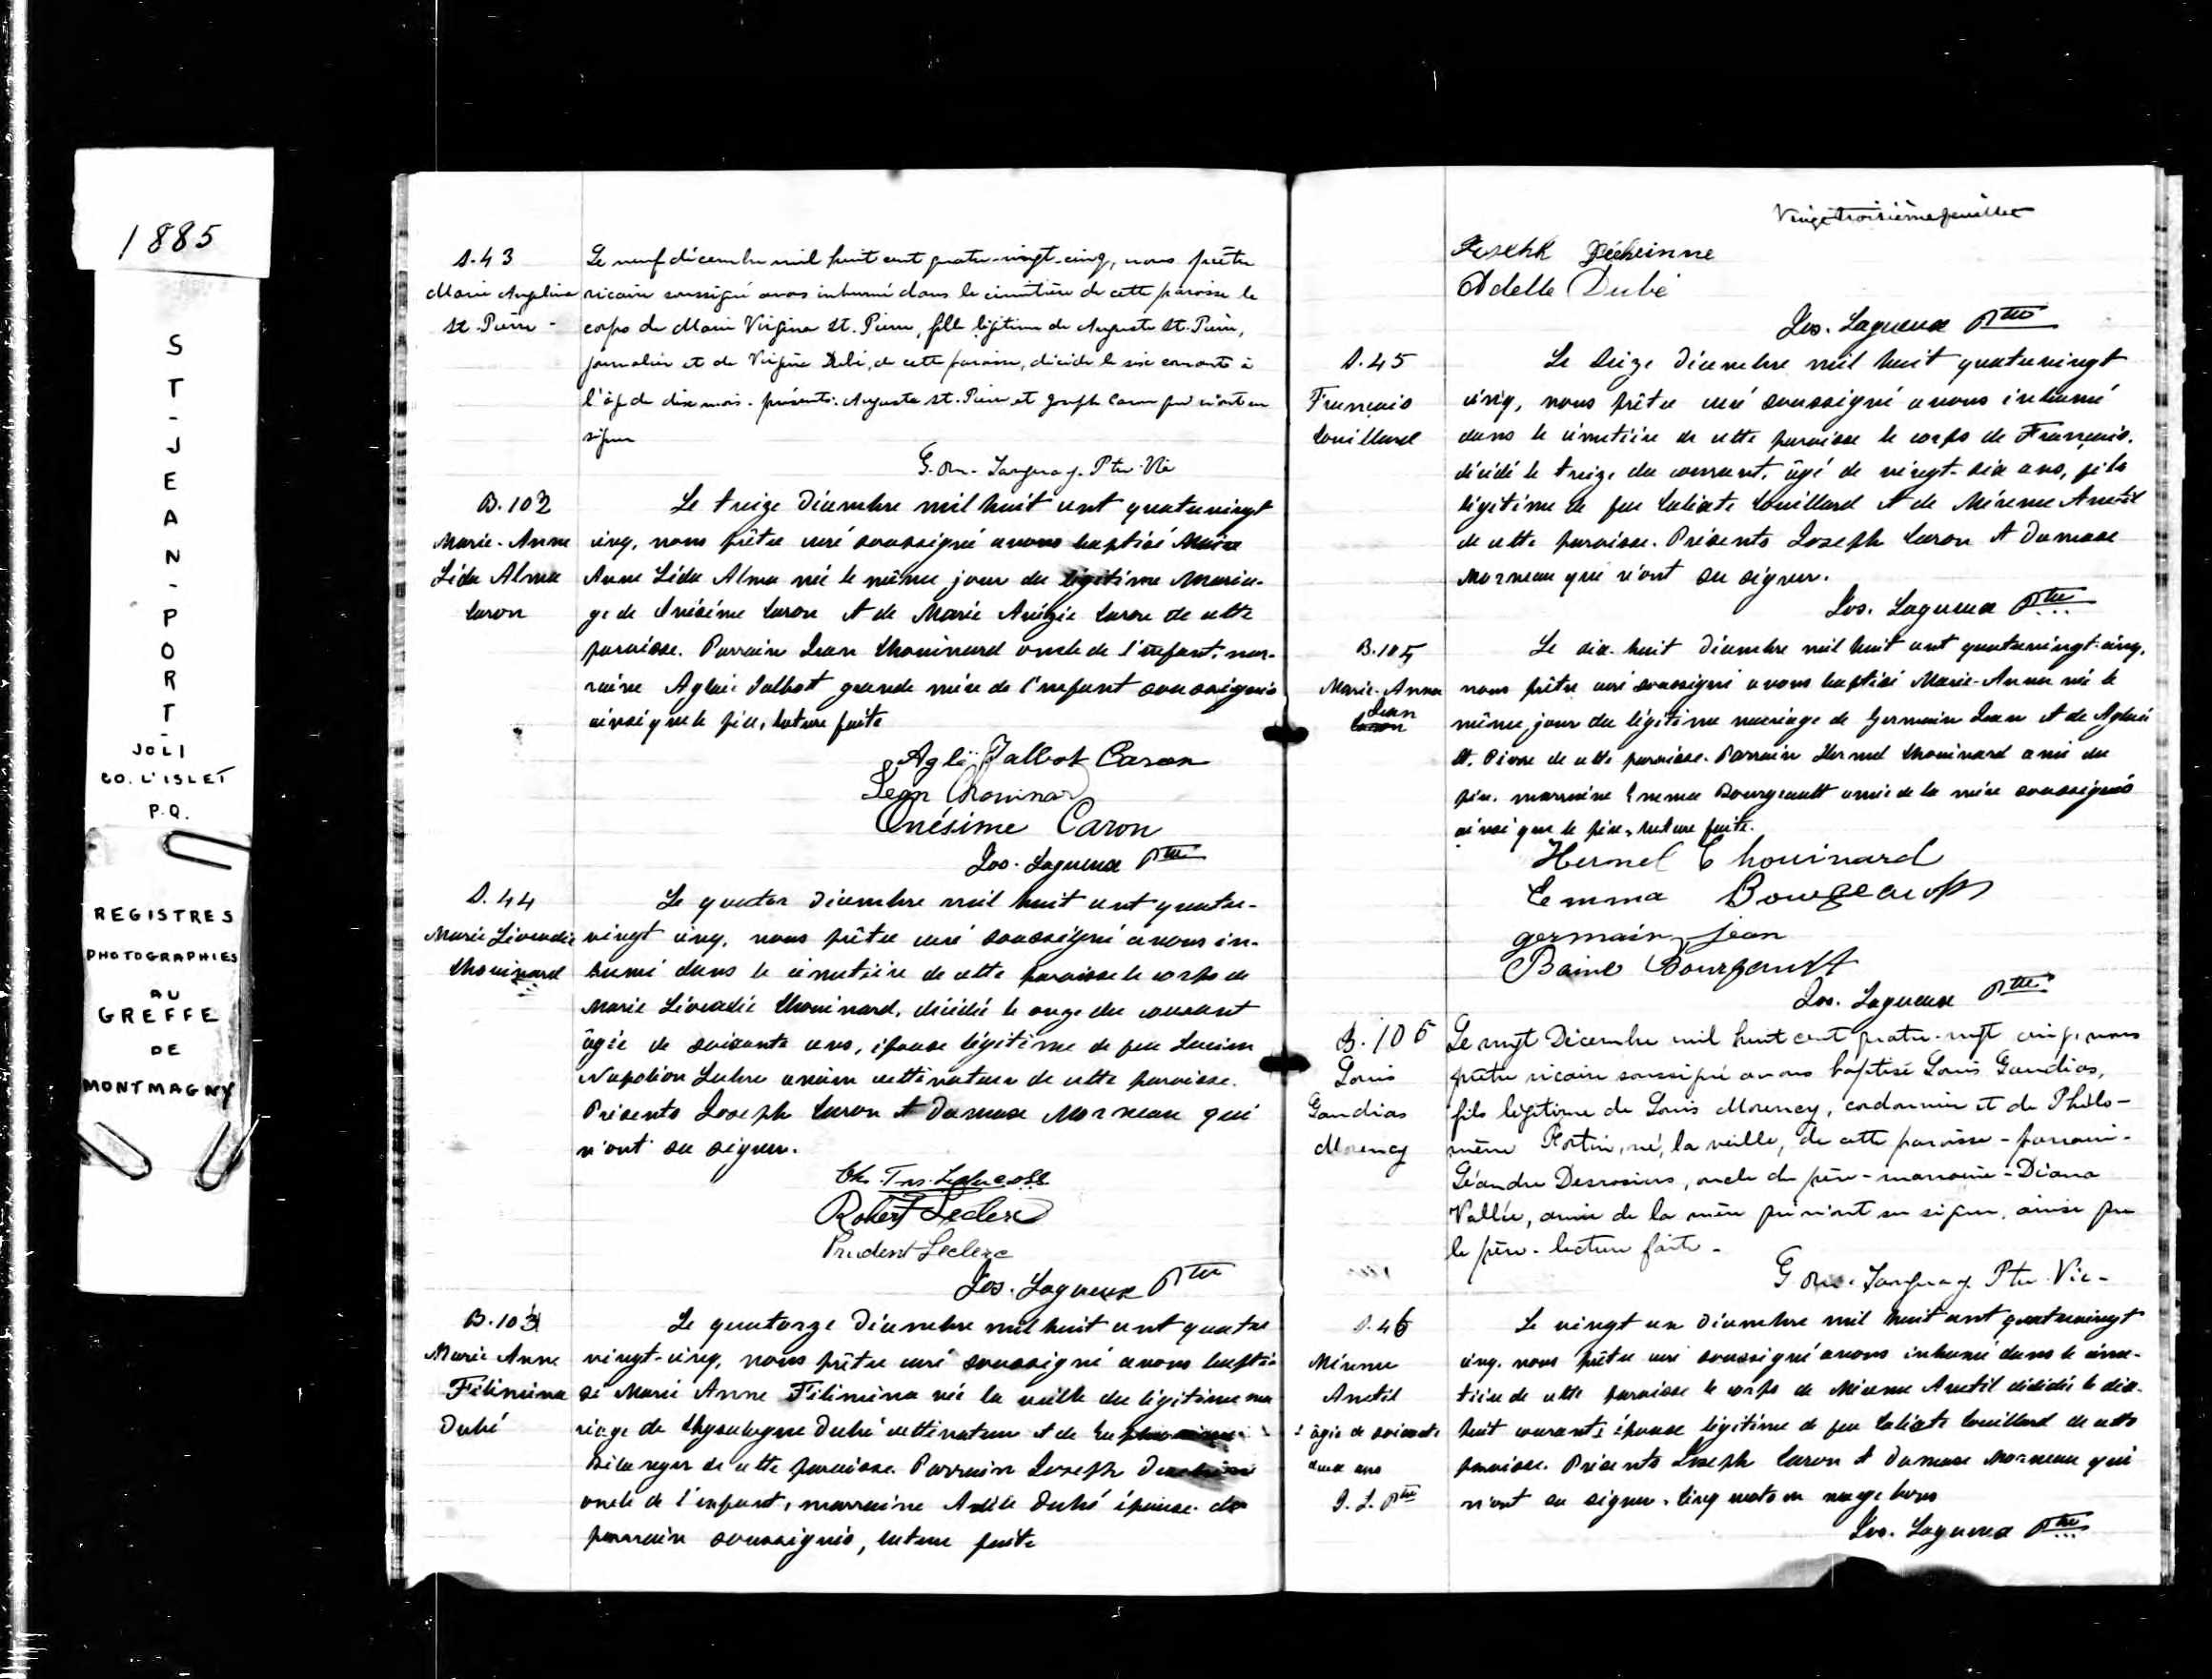 1885
ST-JEAN-PORT-
JOLI
CO. L'ISLET
P.Q.
REGISTRES
PHOTOGRAPHIES
AU
GREFFE
DE
MONTMAGNY
S.43
Marie Angelina
St. Pierre -
Le neuf décembre mil huit cent quatre-vingt-cinq, nous prêtre
vicaire soussigné avons inhumé dans le cimetière de cette paroisse le
corps de Marie Virginie St. Pierre, fille légitime de Auguste St. Pierre,
journalier et de Virginie Dubé, de cette paroisse, décédé le six courant à
l'âge de dix mois. présents: Auguste St. Pierre et Joseph Caron qui n'ont su
signer
G. Tanguay. Ptre Vic
B.102
Marie-Anne
Léda Alma
Caron
Le treize Décembre mil huit cent quatrevingt
cinq, nous prêtre curé soussigné avons baptisé Marie
Anne Léda Alma née le même jour du légitime maria-
ge de Onésime Caron et de Marie Caron de cette
paroisse. Parrain Jean Chouinard oncle de l'enfant, mar-
raine Aglaé Talbot grande mère de l'enfant soussignés
ainsi que le père, lecture faite
Agli Talbot Caron
Jean Chouinard
Onésime Caron
Jos. Lagueux Ptre
S.44
Marie Léocadie
Chouinard
Le quator Décembre mil huit cent quatre-
vingt cinq, nous prêtre curé soussigné avons in-
humé dans le cimetière de cette paroisse le corps de
Marie Léocadie Chouinard, décédée le onze du courant
âgée de soixante ans, épouse légitime de feu Lucien
Napoléon ancien cultivateur de cette paroisse.
Présents Joseph Caron et Damase Morneau qui
n'ont su signer.
Robert Leclerc
Prudent Leclerc
Jos. Lagueux Ptre
B.103
Marie Anne
Félimina
Dubé
Le quatorze Décembre mil huit cent quatre
vingt-cinq, nous prêtre curé soussigné avons bapti-
sé Marie Anne Félimina née la veille du légitime ma
riage de Chysologue Dubé cultivateur et de
Bélanger de cette paroisse. Parrain Joseph
oncle de l'enfant, marraine Adèle Dubé épouse du
parrain soussignés, lecture faite
Vingttroisième feuillet
Joseph Décheinne
Adelle Dubé
Jos. Lagueux Ptre
S.45
François
Couillard
Le Seize Décembre mil huit quatrevingt
cinq, nous prêtre curé soussigné avons inhumé
dans le cimetière de cette paroisse le corps de François,
décédé le treize du courant, âgé de vingt-six ans, fils
légitime de feu Calixte Couillard et de Mérence Anctil
de cette paroisse. Présents Joseph Caron et Damase
Morneau qui n'ont su signer.
Jos. Lagueux Ptre
B.105
Marie-Anna
Jean
Caron
Le dix-huit Décembre mil huit cent quatrevingt-cinq,
nous prêtre curé soussigné avons baptisé Marie-Anna née le
même jour du légitime mariage de Germain Jean et de Aglaé
St. Pierre de cette paroisse. Parrain Hermel Chouinard ami du
père, marraine Emma Bourgeault amie de la mère soussignés
ainsi que le père, lecture faite.
Hermel Chouinard
Emma Bourgeault
germain jean
Bourgeault
Jos. Lagueux Ptre
B.106
Louis
Gaudias
Morency
Le vingt Décembre mil huit cent quatre-vingt cinq, nous
prêtre vicaire soussigné avons baptisé Louis Gaudias,
fils légitime de Louis Morency, cordonnier et de Philo-
mène Fortin, né, la veille, de cette paroisse - parrain -
Léandre Desrosiers, oncle du père - marraine - Diana
Vallée, amie de la mère qui n'ont su signer, ainsi que
le père - lecture faite -
G. Tanguay. Ptre Vic -
S.46
Mérence
Anctil
âgée de soixante
deux ans
J. L. Ptre
Le vingt un Décembre mil huit cent quatrevingt
cinq, nous prêtre curé soussigné avons inhumé dans le cime-
tière de cette paroisse le corps de Mérence Anctil décédée le dix-
huit courant, épouse légitime de feu Calixte Couillard de cette
paroisse. Présents Joseph Caron et Damase Morneau qui
n'ont su signer. Cinq mots en marge bons
Jos. Lagueux Ptre